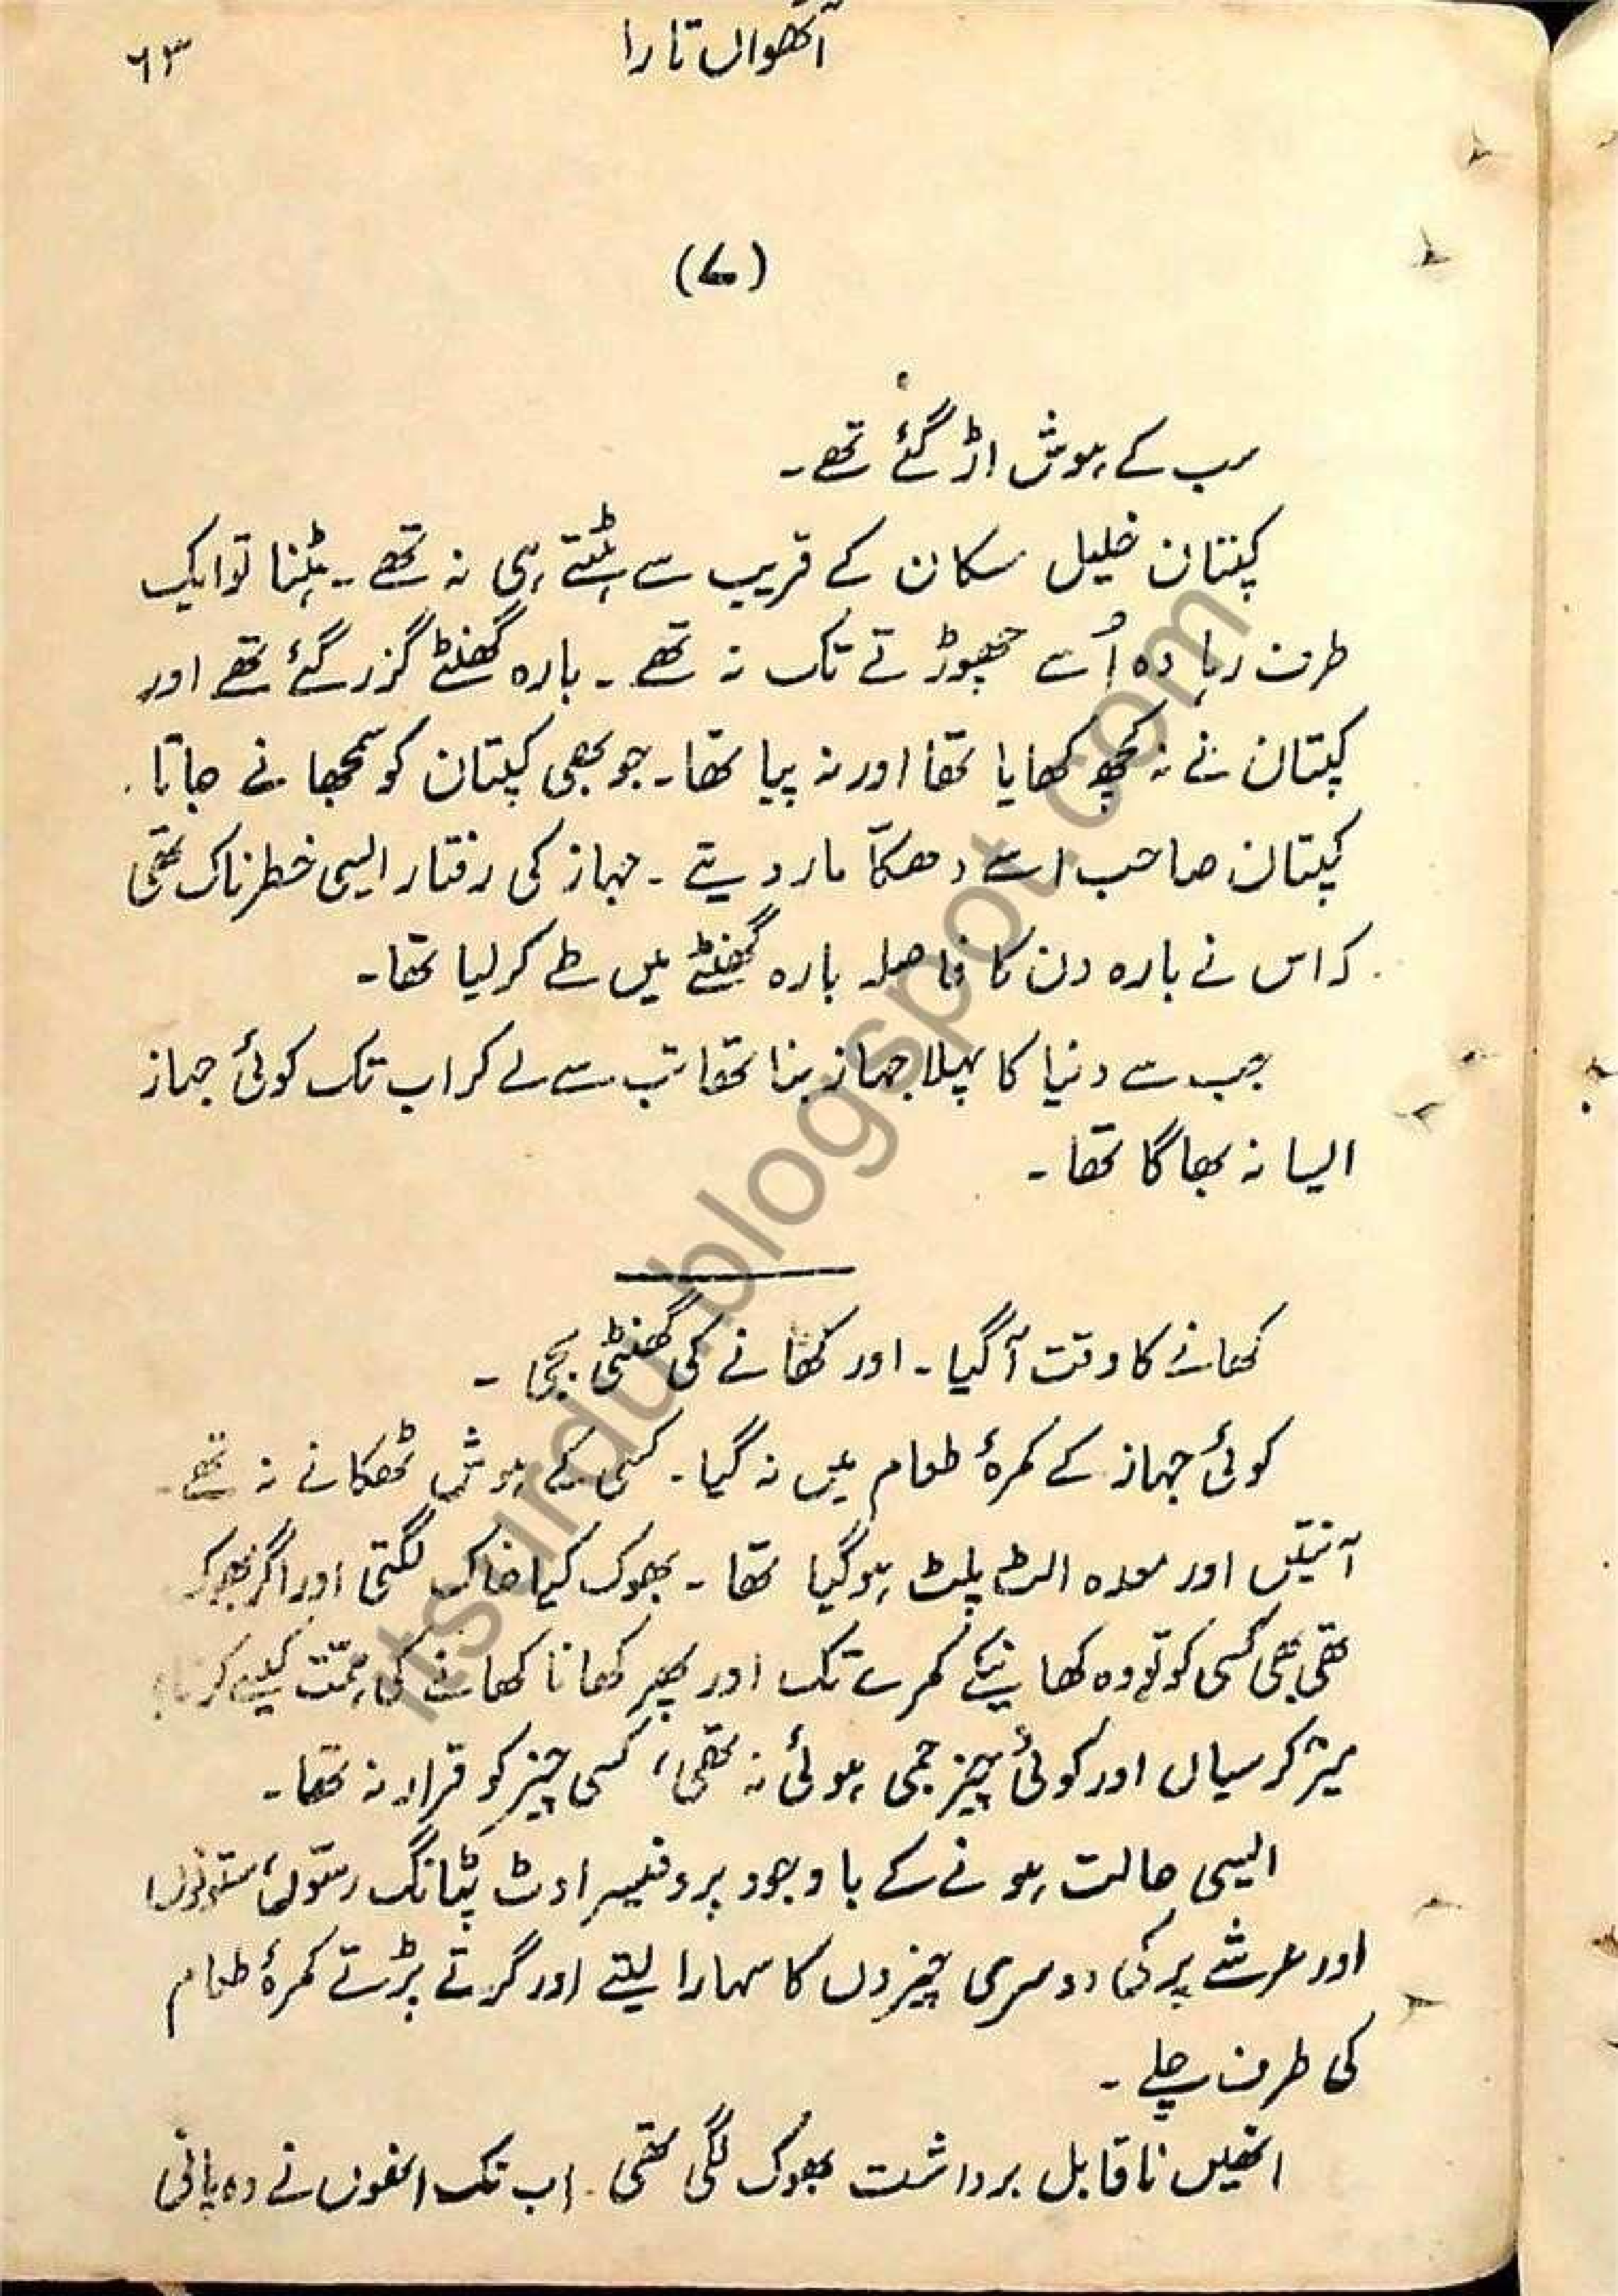 آٹھواں تارا
۶۳
(۷)
سب کے ہوش اڑ گئے تھے۔
کپتان خلیل سکان کے قریب سے ہٹتے ہی نہ تھے۔ ہٹنا تو ایک
طرف رہا وہ اُسے چھوڑتے تک نہ تھے۔ بارہ گھنٹے گزر گئے تھے اور
کپتان نے نہ کچھ کھایا تھا اور نہ پیا تھا۔ جو بھی کپتان کو سمجھانے جاتا
کپتان صاحب اسے دھکّا مار دیتے۔ جہاز کی رفتار ایسی خطرناک تھی
کہ اس نے بارہ دن کا فاصلہ بارہ گھنٹے میں طے کر لیا تھا۔
جب سے دنیا کا پہلا جہاز بنا تھا تب سے لے کر اب تک کوئی جہاز
ایسا نہ بھاگا تھا۔
کھانے کا وقت آگیا۔ اور کھانے کی گھنٹی بجی۔
کوئی جہاز کے کمرۂ طعام میں نہ گیا۔ کسی کے ہوش ٹھکانے نہ تھے۔
آنتیں اور معدہ الٹ پلٹ ہوگیا تھا۔ بھوک کیا خاک لگتی اور اگر بھوک
تھی بھی کسی کو تو وہ کھانیکے کمرے تک اور پھر کھانا کھانے کی ہمّت کیسے کرتا۔
میز کرسیاں اور کوئی چیز جمی ہوئی نہ تھی، کسی چیز کو قرار نہ تھا۔
ایسی حالت ہونے کے باوجود پروفیسر اوٹ پٹانگ رسّوں، ستونوں
اور عرشے پر کی دوسری چیزوں کا سہارا لیتے اور گرتے پڑتے کمرۂ طعام
کی طرف چلے۔
انھیں ناقابل برداشت بھوک لگی تھی۔ اب تک انھوں نے وہ پانی
itsurdu.blogspot.com